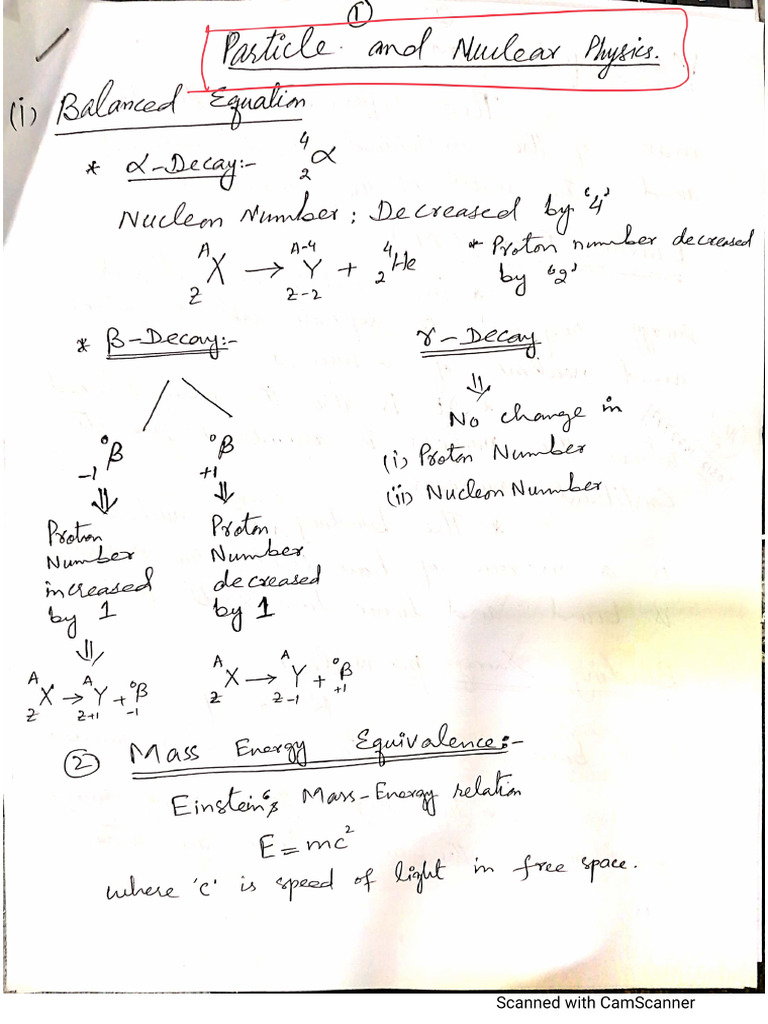 ①
Particle and Nuclear Physics.
(i) Balanced Equation
* α-Decay:- ⁴₂α
Nucleon Number: Decreased by '4'
ᴬ_Z X → ᴬ⁻⁴_Z-2 Y + ⁴₂He
* Proton number decreased
by '2'
* β-Decay:-
⁰₋₁β ⁰₊₁β
Proton
Number
increased
by 1
ᴬ_Z X → ᴬ_Z+1 Y + ⁰₋₁β
Proton
Number
decreased
by 1
ᴬ_Z X → ᴬ_Z-1 Y + ⁰₊₁β
γ-Decay
⇓
No change in
(i) Proton Number
(ii) Nucleon Number
② Mass Energy Equivalence:-
Einstein's Mass-Energy relation
E = mc²
where 'c' is speed of light in free space.
Scanned with CamScanner